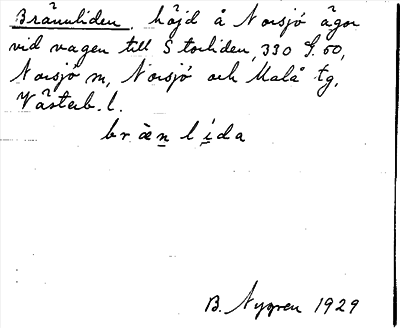 Brännliden, höjd å Norsjö ägor
vid vägen till Storliden, 330 S. 50,
Norsjö sn, Norsjö och Malå tg,
Västerb. l.
bræn lida
B. Nygren 1929